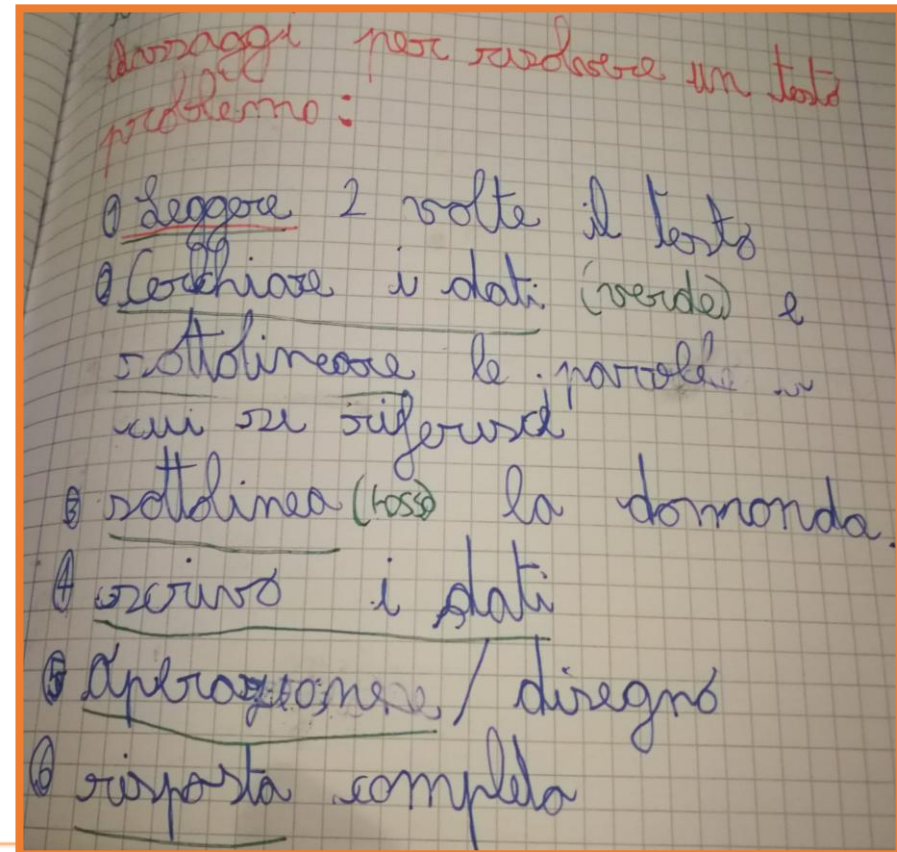 passaggi per risolvere un testo
problema:
① Leggere 2 volte il testo
② Cerchiare i dati (verde) e
sottolineare le parole
cui si riferisce
③ sottolinea (rosso) la domanda.
④ scrivo i dati
⑤ Operazione / disegno
⑥ risposta completa